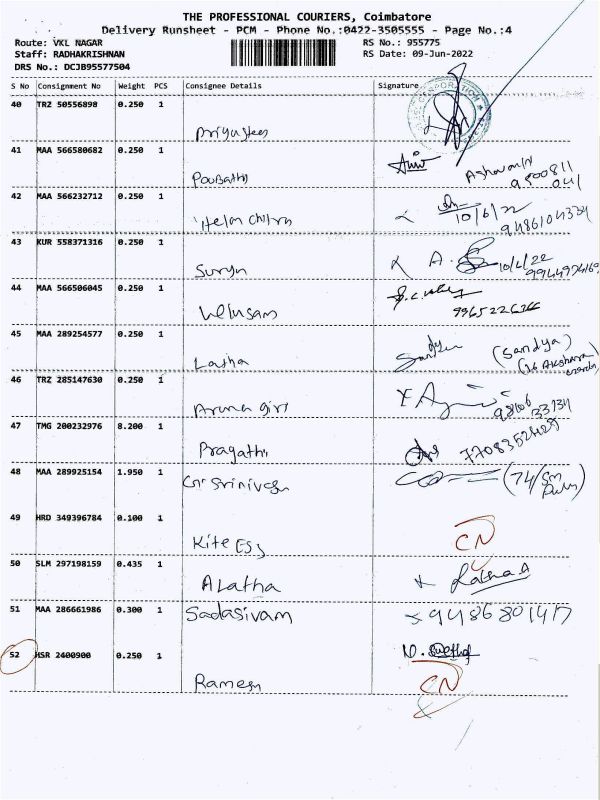 THE PROFESSIONAL COURIERS, Coimbatore
Delivery Runsheet - PCM - Phone No.:0422-3505555 - Page No.:4
Route: VKL NAGAR
Staff: RADHAKRISHNAN
DRS No.: DCJB95577504
RS No.: 955775
RS Date: 09-Jun-2022
S No Consignment No Weight PCS Consignee Details Signature
40 TRZ 50556898 0.250 1
41 MAA 566580682 0.250 1
Poubathi
42 MAA 566232712 0.250 1
Helan Chitra
10/6/22
43 KUR 558371316 0.250 1
Surya A.
44 MAA 566506045 0.250 1
Velusam
45 MAA 289254577 0.250 1
Latha (Sandya)
46 TRZ 285147630 0.250 1
Aruna giri
47 TMG 200232976 8.200 1
Pragathi 7708352428
48 MAA 289925154 1.950 1
Srinivasan (74/Sm
49 HRD 349396784 0.100 1
Kite CN
50 SLM 297198159 0.435 1
A Latha Latha A
51 MAA 286661986 0.300 1
Sadasivam 9486801417
52 HSR 2400900 0.250 1
N.
Ramesh CN